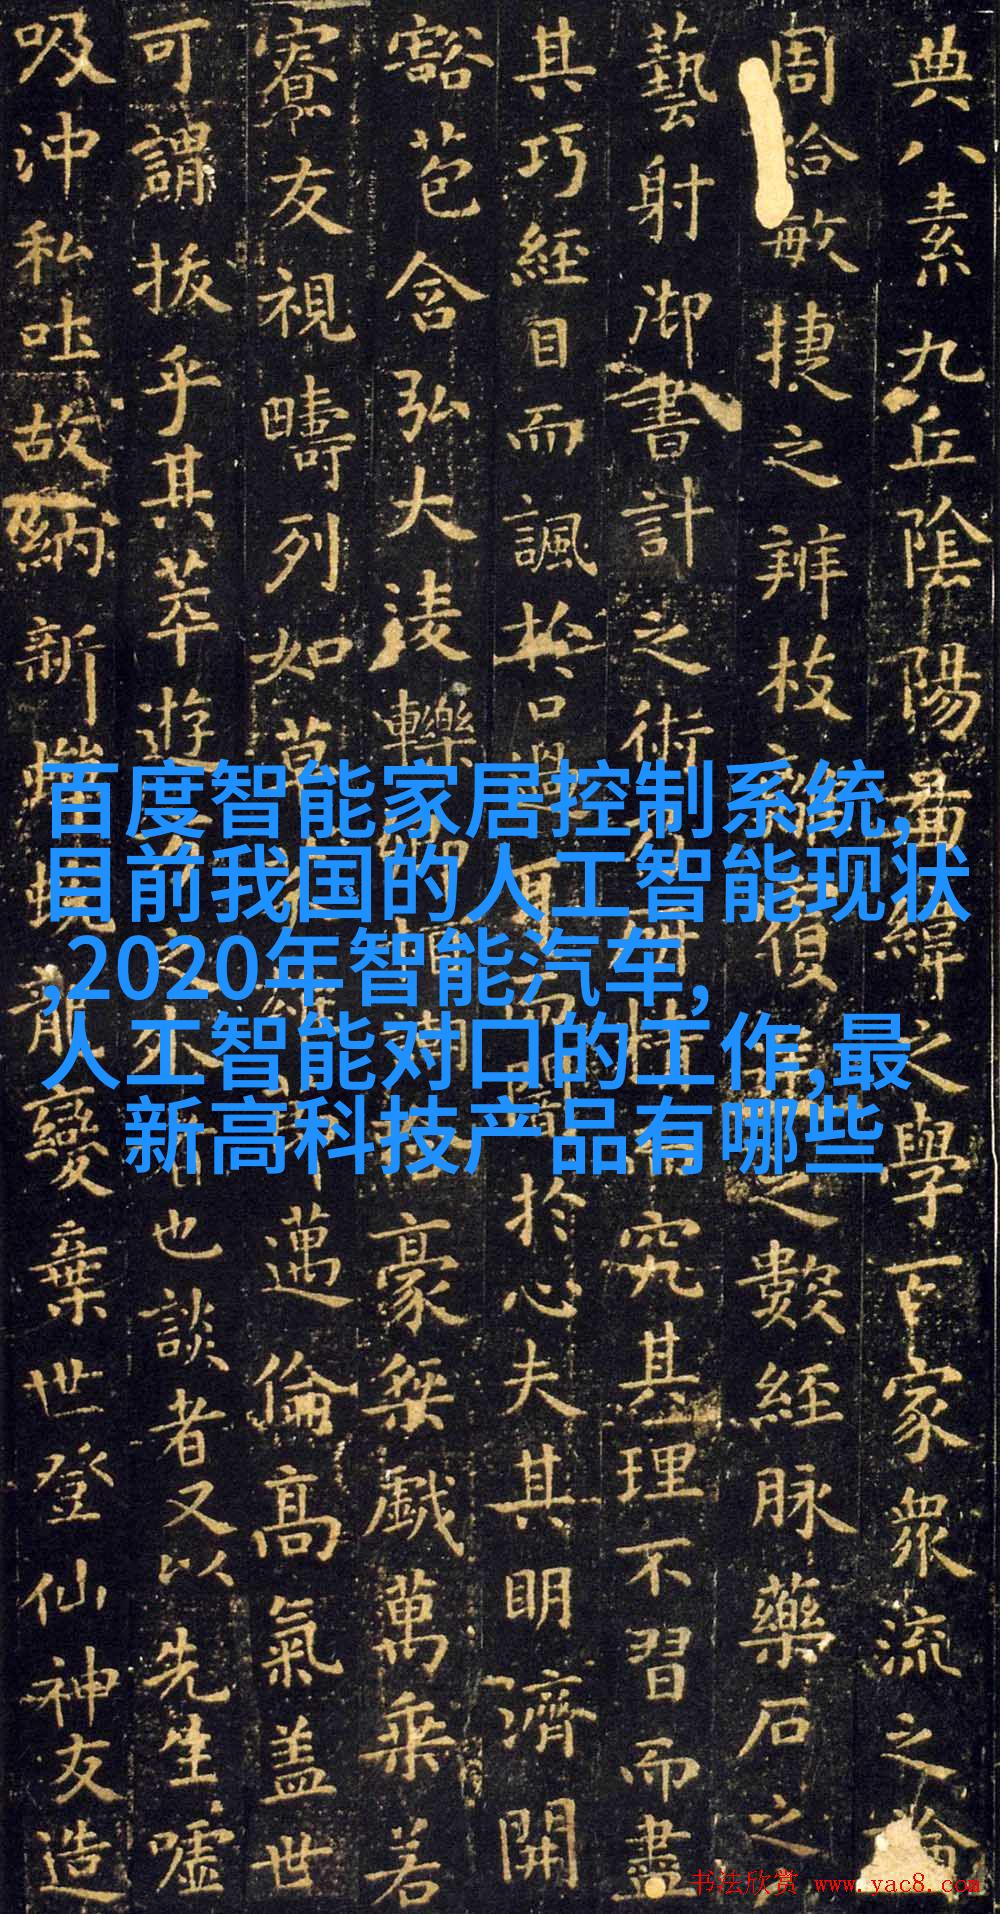 典八素九丘陰陽啚緯之學百家衆流之論
周給敏捷之辨枝覆之數經脉藥石之
藝射御書計之術研究其理不習而盡
其巧經目而諷於口過耳而於心夫其明濟開
豁苞含弘大淩轢豪桀戲萬乘若
寮友視疇列如草邁倫高氣盖世
可謂拔乎其萃遊方之外也談者又以先生噓
吸沖私吐故納新蟬蛻龍變棄世登仙神友造
百度智能家居控制系统,
目前我国的人工智能现状
,2020年智能汽车,
人工智能对口的工作,最
新高科技产品有哪些
书法欣赏 www.yac8.com